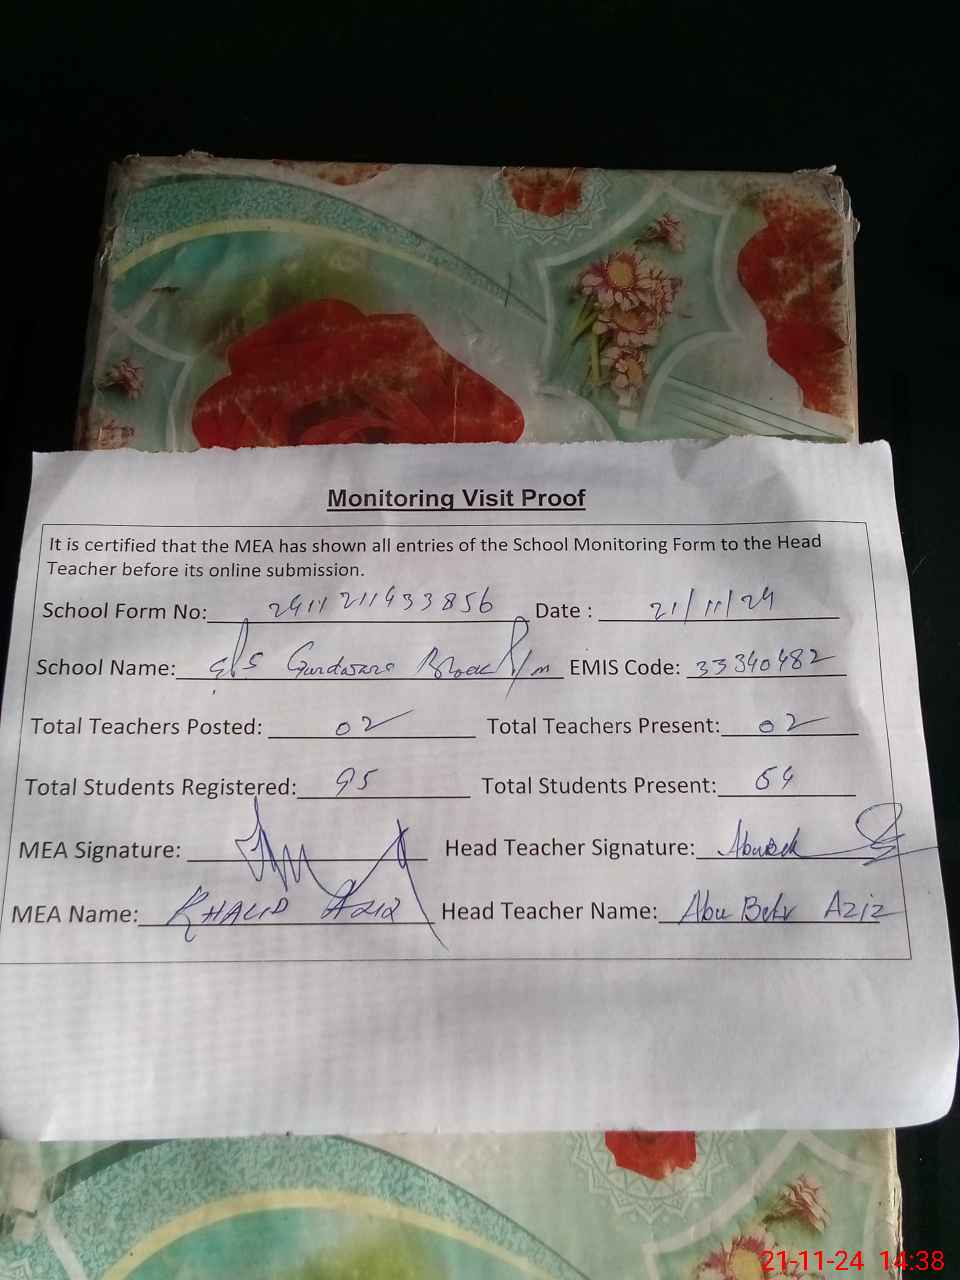 Monitoring Visit Proof
It is certified that the MEA has shown all entries of the School Monitoring Form to the Head
Teacher before its online submission.
School Form No: 2411211433856 Date : 21/11/24
School Name: EMIS Code: 33340482
Total Teachers Posted: 02 Total Teachers Present: 02
Total Students Registered: 95 Total Students Present: 64
MEA Signature: Head Teacher Signature:
MEA Name: KHALID AZIZ Head Teacher Name: Abu Bekr Aziz
21-11-24 14:38